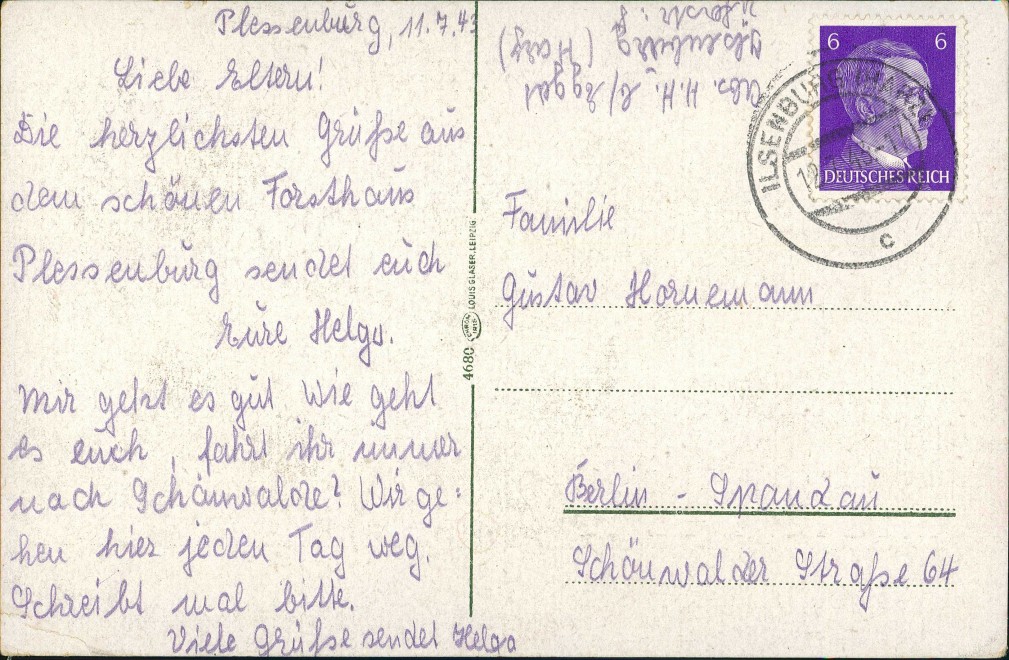 Plessenburg, 11.7.43
Liebe Eltern!
Die herzlichsten Grüße aus
dem schönen Forsthaus
Plessenburg sendet euch
Eure Helga.
Mir geht es gut Wie geht
es euch, fahrt ihr immer
nach Schönwalde? Wir ge=
hen hier jeden Tag weg.
Schreibt mal bitte.
Viele Grüße sendet Helga
4680
LOUIS GLASER, LEIPZIG.
Abs. H. H. b/ Eggert
Ilsenburg (Harz)
6 6
DEUTSCHES REICH
ILSENBURG (HARZ)
c
Familie
Gustav Hornemann
Berlin - Spandau
Schönwalder Straße 64